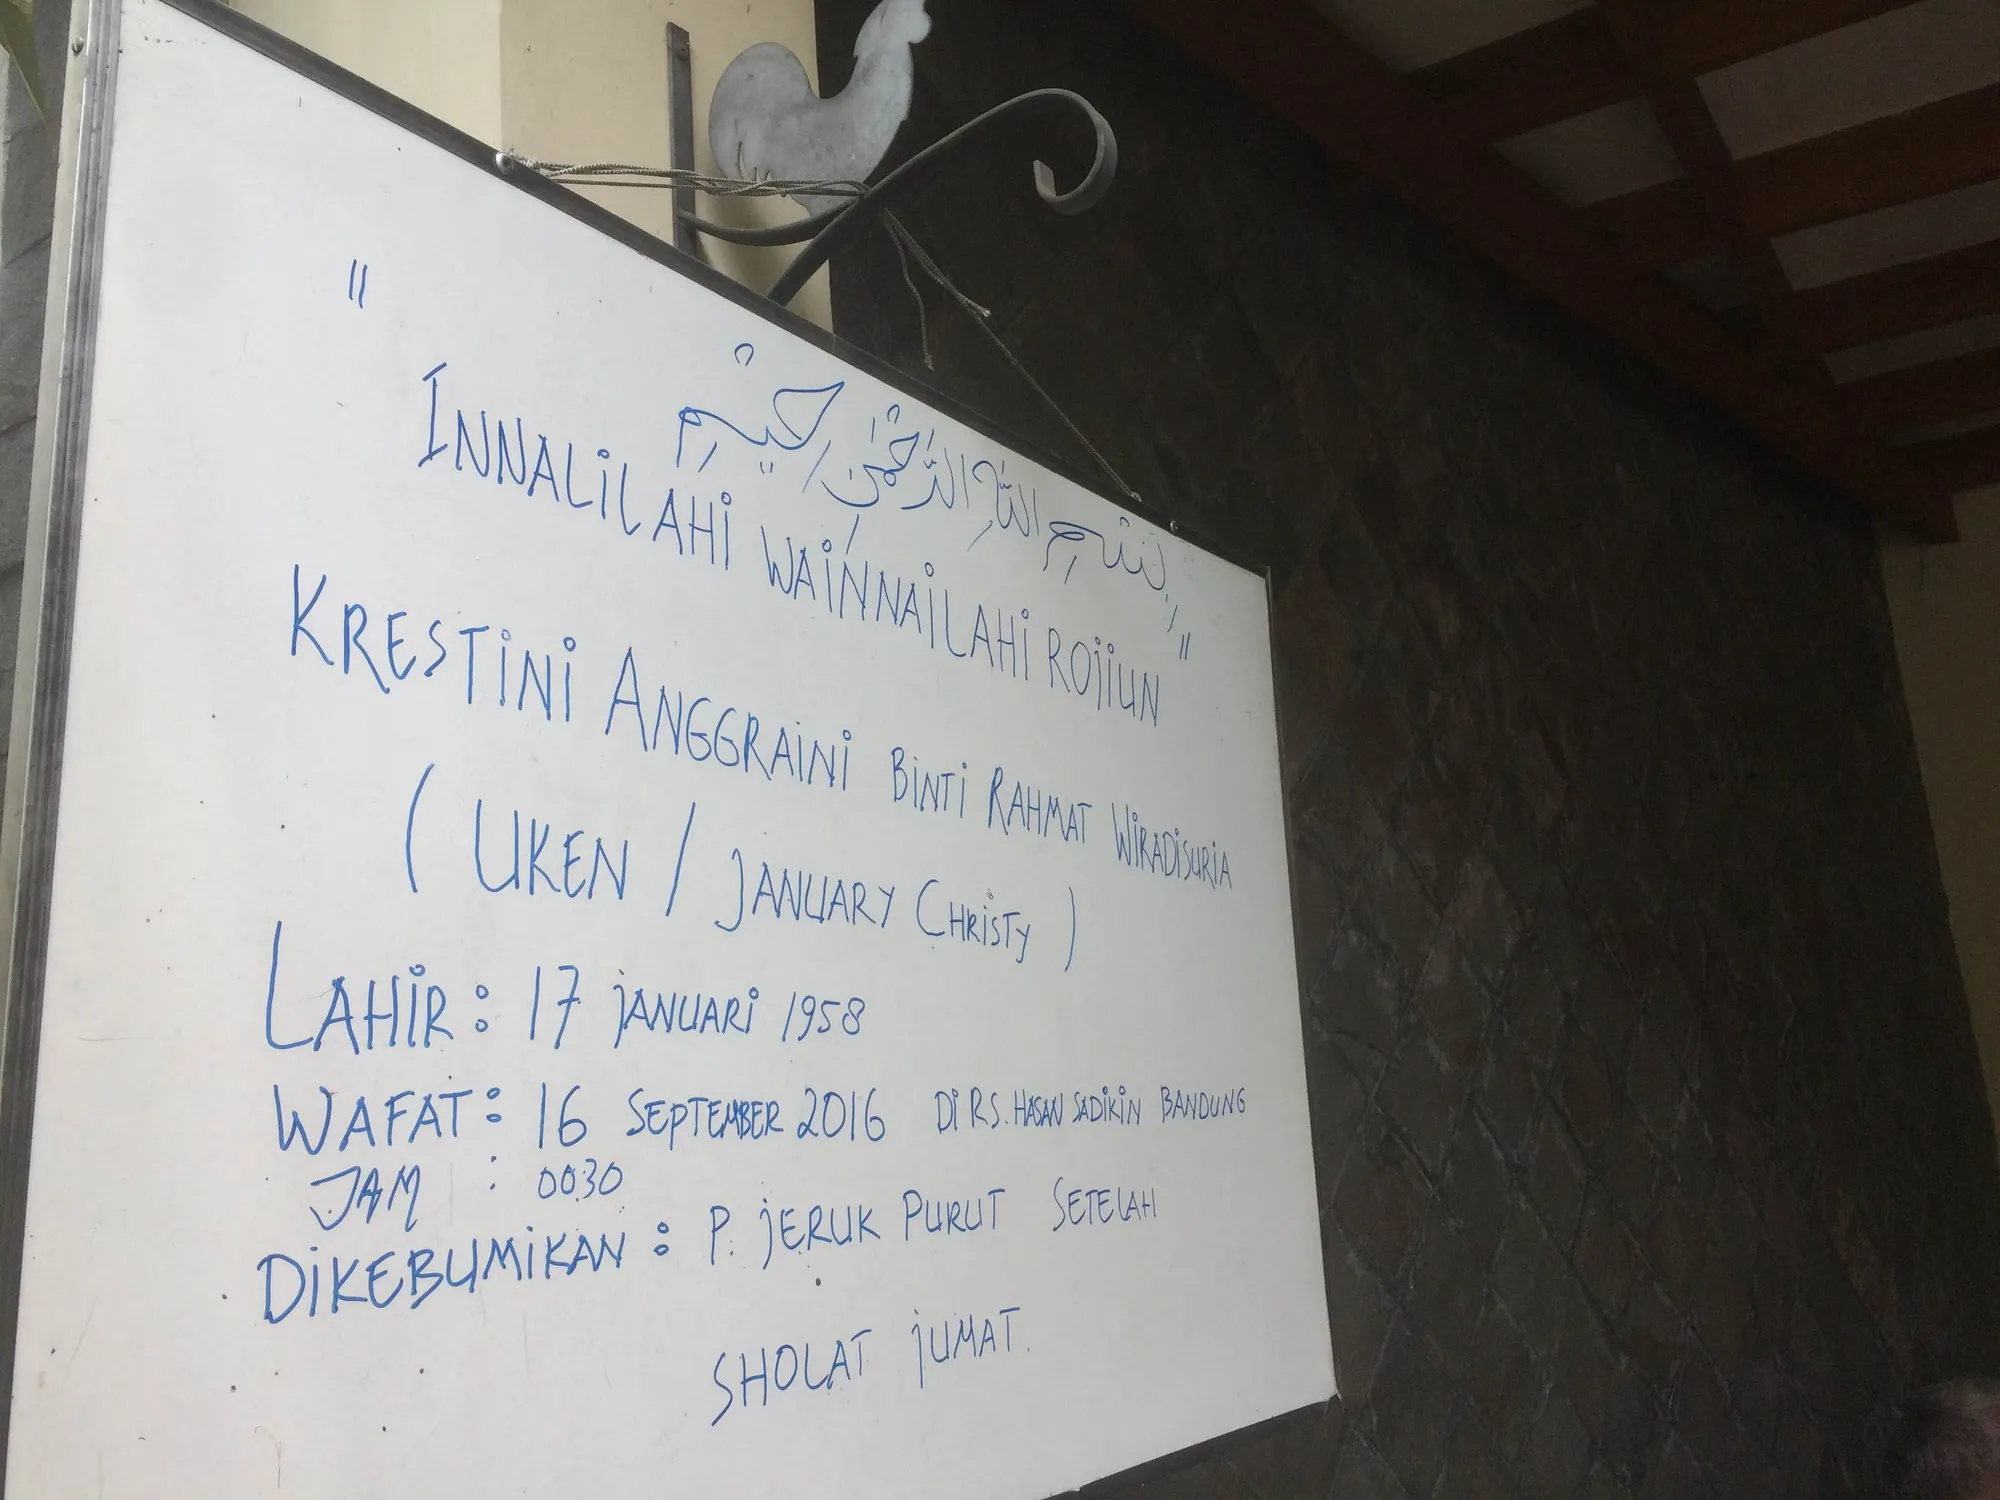 "
بِسْمِ اللّٰهِ الرَّحْمٰنِ الرَّحِيْمِ
INNALILAHI WAINNAILAHI ROJIUN "
KRESTINI ANGGRAINI BINTI RAHMAT WIRADISURIA
( UKEN / JANUARY CHRISTY )
LAHIR : 17 JANUARI 1958
WAFAT : 16 SEPTEMBER 2016 DI RS. HASAN SADIKIN BANDUNG
JAM : 00.30
DIKEBUMIKAN : P. JERUK PURUT SETELAH
SHOLAT JUMAT.